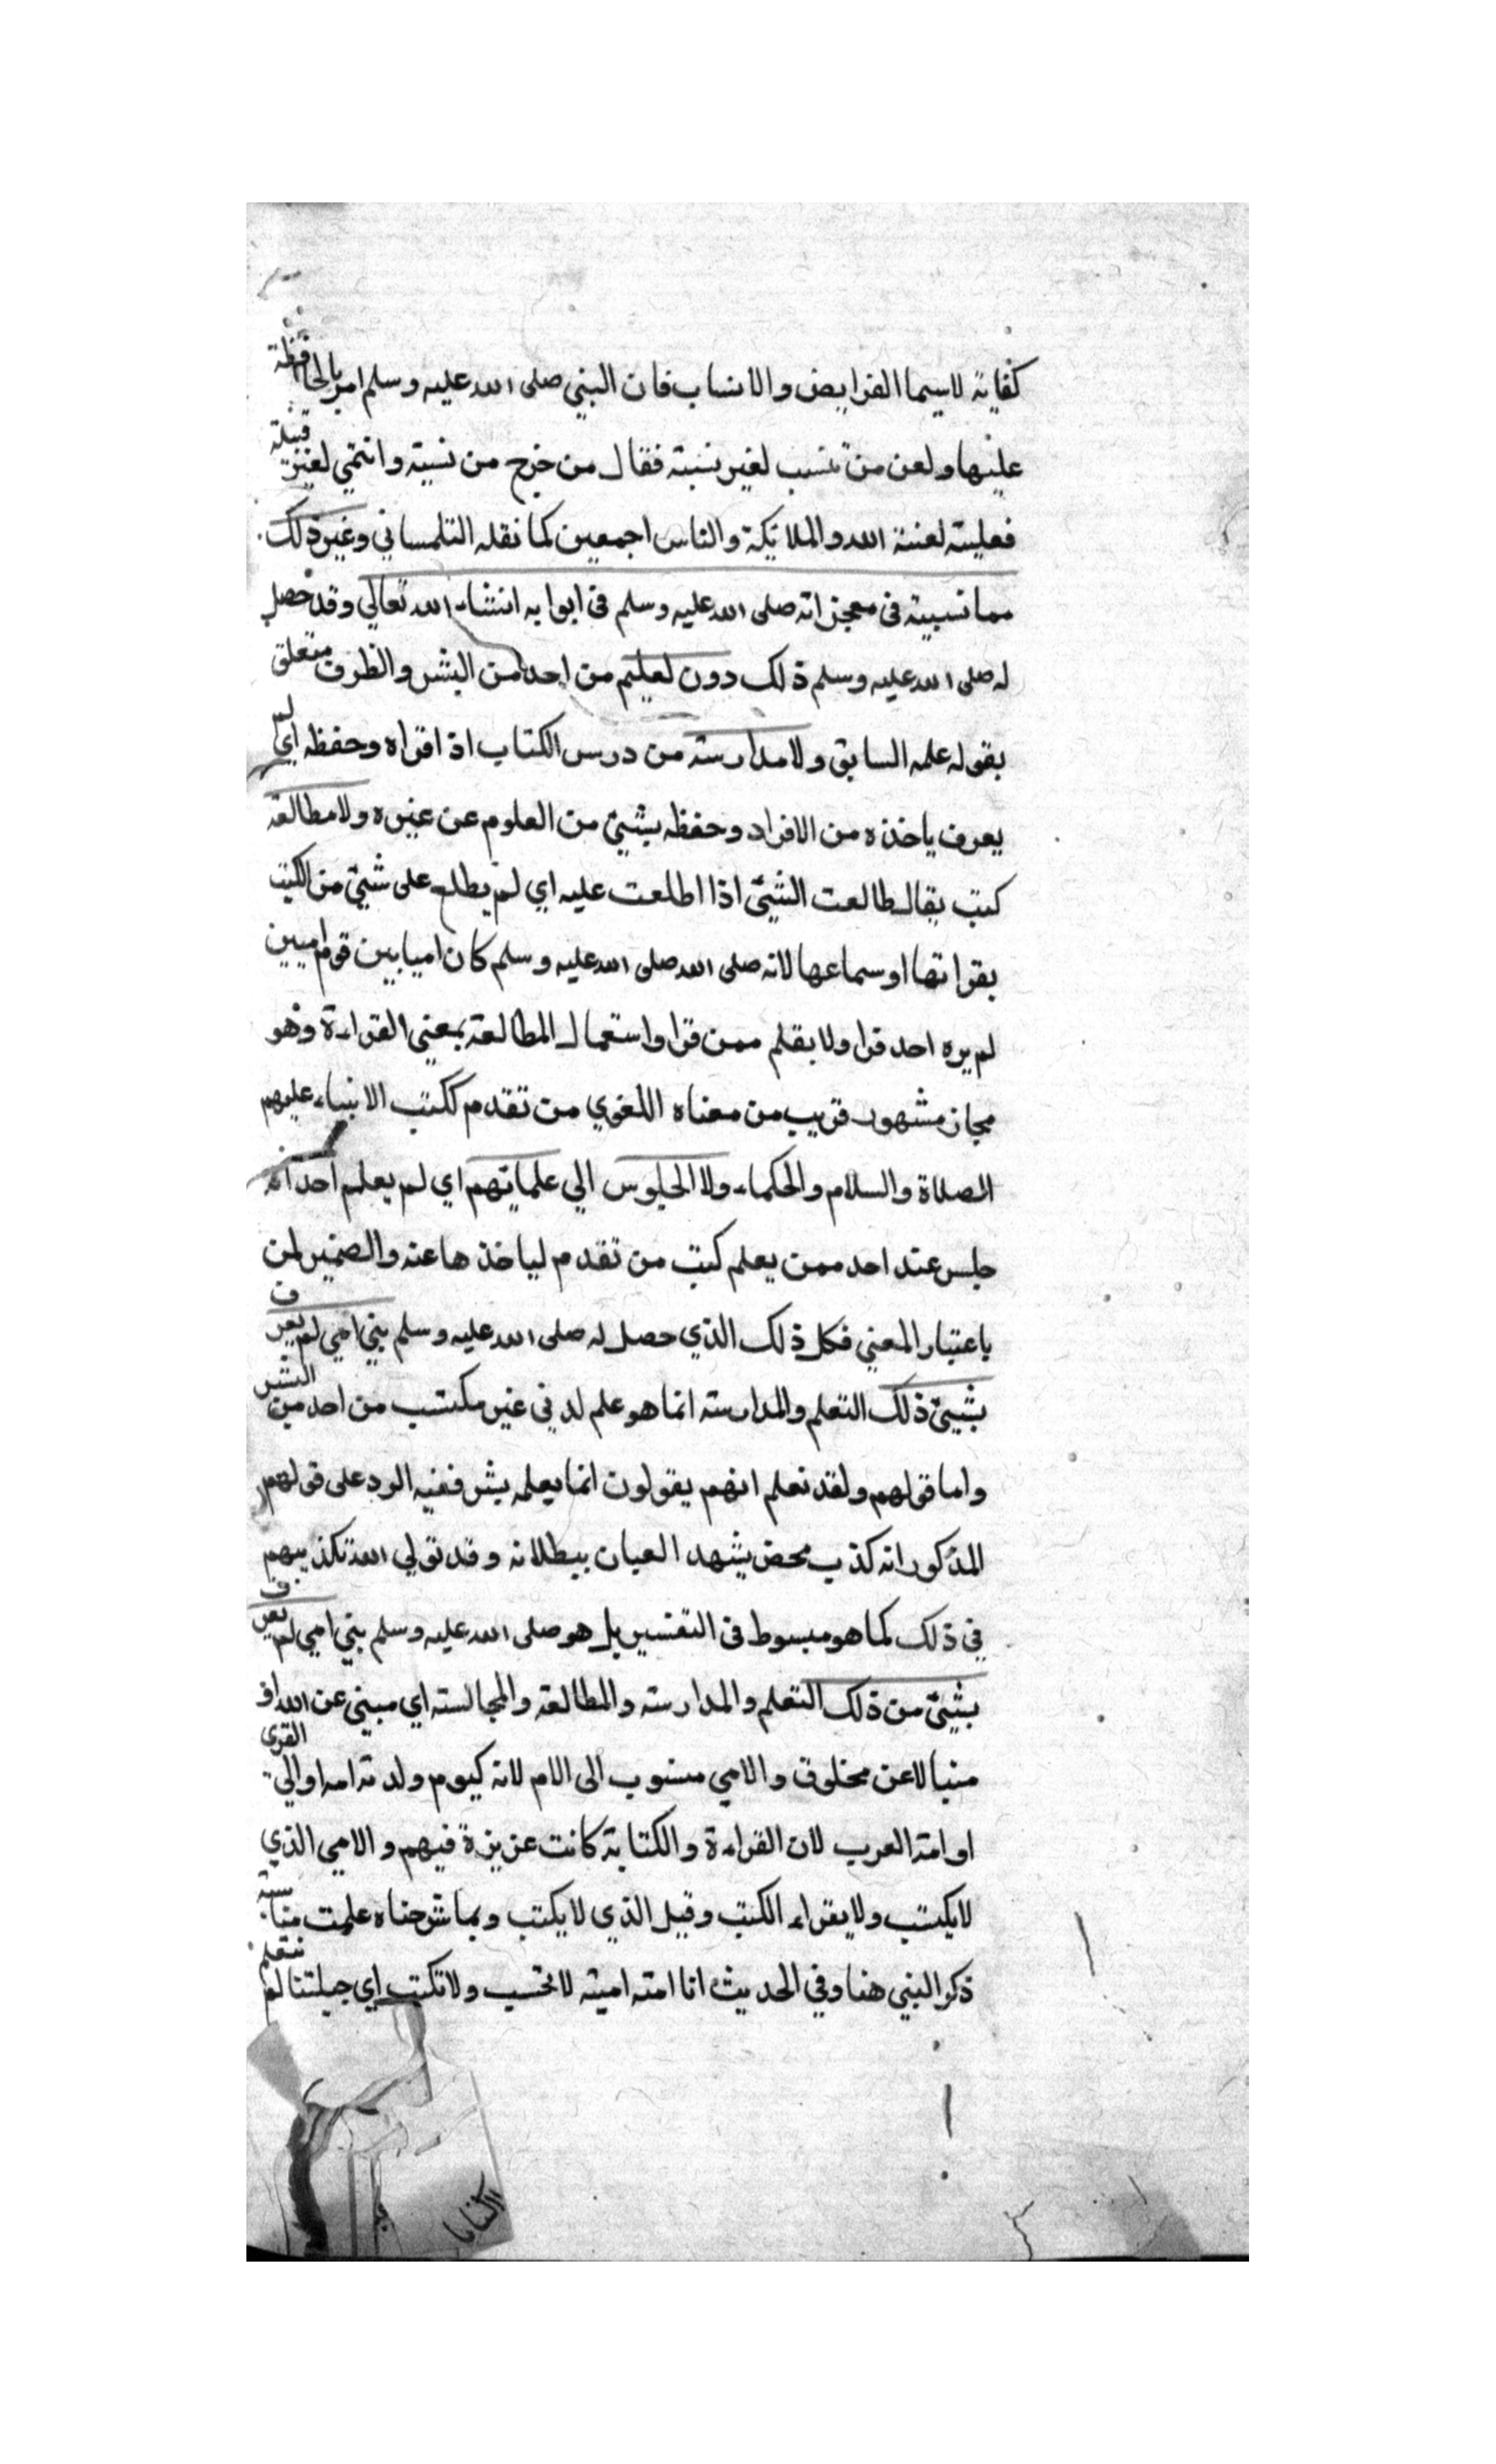 كفاية لاسيما الفرايض والانساب فان النبي صلى الله عليه وسلم امر بالمحافظة
عليها ولعن من تنسب لغير نسبته فقال من خرج من نسبته وانتمي لغير قبيلته
فعليته لعنة الله والملائكة والناس اجمعين كما نقله التلمساني وغير ذلك
مما نبينه في معجزاته صلى الله عليه وسلم في ابوابه انشاء الله تعالي وقد حصل
له صلى الله عليه وسلم ذلك دون تعليم من احد من البشر والظرف متعلق
بقوله علمه السابق ولا مدارسته من درس الكتاب اذا قراه وحفظه اي لم
يعرف ياخذه من الافراد وحفظه بشيئ من العلوم عن غيره ولا مطالعة
كتب يقال طالعت الشيئ اذا اطلعت عليه اي لم يطلع على شيئ من الكتب
بقراتها او سماعها لانه صلى الله صلى الله عليه وسلم كان اميا بين قوم اميين
لم يره احد قرا ولا بقلم ممن قرا واستعمال المطالعة بمعني القراءة وهو
مجاز مشهور قريب من معناه اللغوي من تقدم ككتب الانبياء عليهم
الصلاة والسلام والحكماء ولا الجلوس الي علمائهم اي لم يعلم احد انه
جلس عند احد ممن يعلم كتب من تقدم لياخذها عنه والضمير لمن
باعتبار المعني فكل ذلك الذي حصل له صلى الله عليه وسلم نبي امي لم يعرف
بشيئ ذلك التعلم والمدارسته انما هو علم لدني غير مكتسب من احد من البشر
واما قولهم ولقد نعلم انهم يقولون انما يعلمه بشر ففيه الرد على قولهم
المذكور انه كذب محض يشهد العيان ببطلانه وقد تولي الله تكذيبهم
في ذلك كما هو مبسوط في التفسير بل هو صلى الله عليه وسلم نبي امي لم يعرف
بشيئ من ذلك التعلم والمدارسته والمطالعة والمجالسته اي مبني عن الله او
منبا لا عن مخلوق والامي منسوب الى الام لانه كيوم ولدته امه او الي القرى
او امة العرب لان القراءة والكتابة كانت عزيزة فيهم والامي الذي
لا يكتب ولا يقراء الكتب وقيل الذي لا يكتب وبما شرحناه علمت مناسبة
ذكر النبي هنا وفي الحديث انا امته اميته لا نحسب ولا نكتب اي جبلتنا لم نتعلم
الكتابا